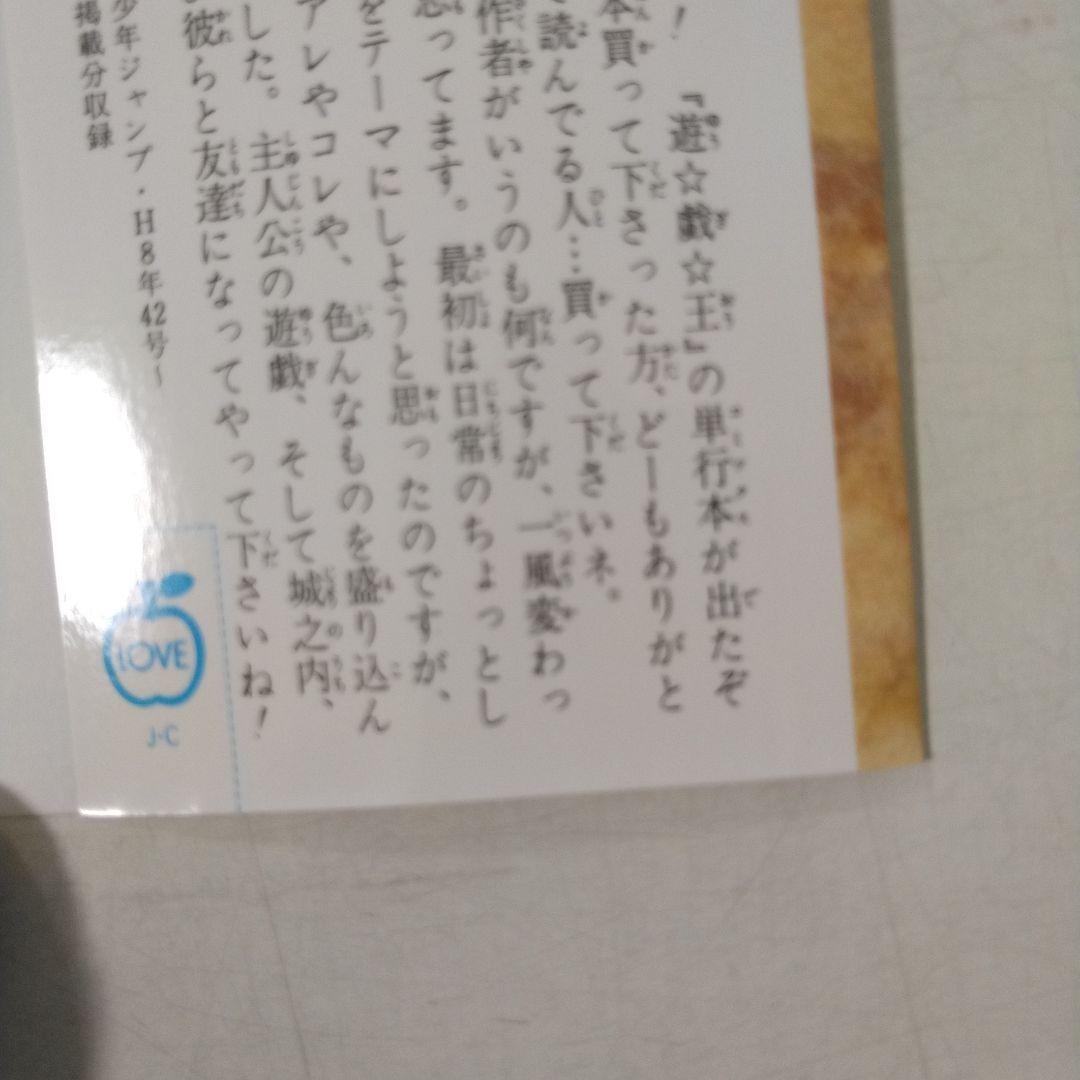 『遊☆戯☆王』の単行本が出たぞ
！
本買って下さった方、どーもありがと
読んでる人…買って下さいネ。
作者がいうのも何ですが、一風変わっ
ってます。最初は日常のちょっとし
をテーマにしようと思ったのですが、
アレやコレや、色んなものを盛り込ん
した。主人公の遊戯、そして城之内、
彼らと友達になってやって下さいね！
少年ジャンプ・H8年42号〜
掲載分収録
LOVE
J・C